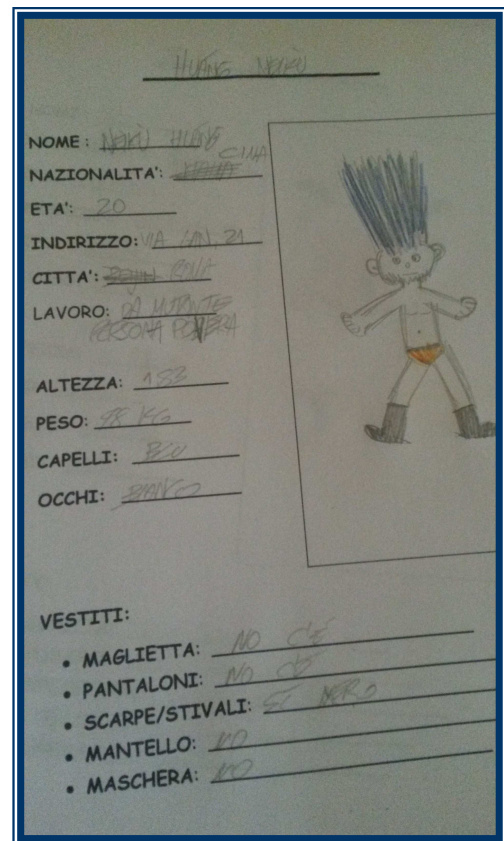 HUANG
NOME: HUANG
NAZIONALITA': CINA
ETA': 20
INDIRIZZO: VIA 21
CITTA': ROMA
LAVORO: DÀ MUTANTE
PERSONA POVERA
ALTEZZA: 183
PESO: 98 KG
CAPELLI: BLU
OCCHI: BIANCO
VESTITI:
• MAGLIETTA: NO C'É
• PANTALONI: NO C'É
• SCARPE/STIVALI: SI NERO
• MANTELLO: NO
• MASCHERA: NO